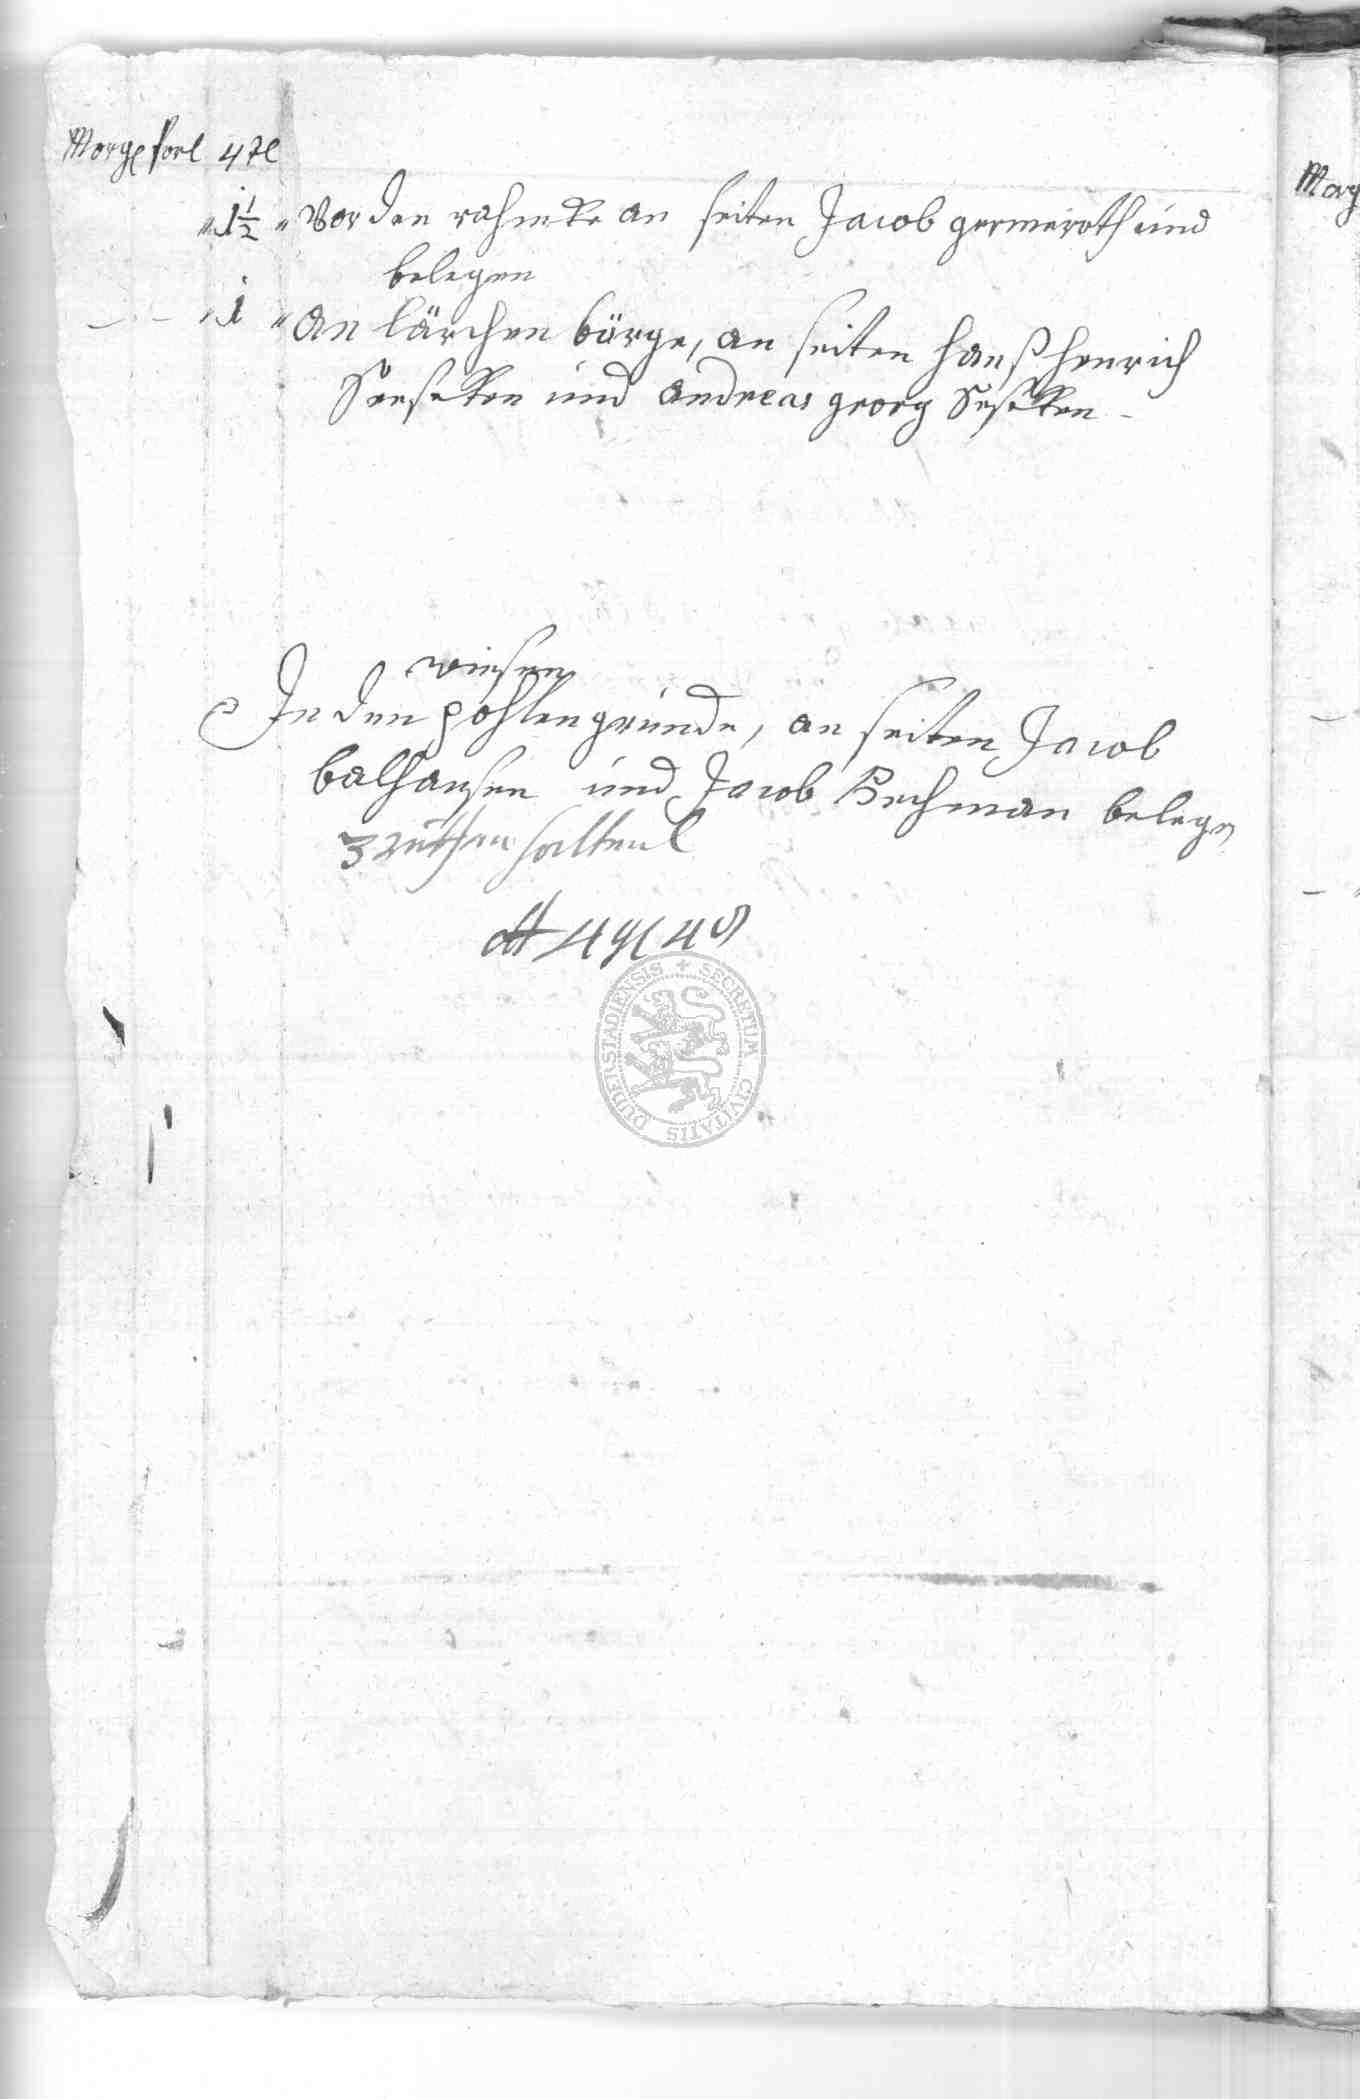 Morg forl 4tl
" 1 1/2 " Vor den rahmke an seiten Jacob germeroth und
belegen
- - " 1 " an lärchen bärge, an seiten hanß henrich
Seeseken und andreas georg Seseken -
wiesen
In den pohlengrunde, an seiten Jacob
balhausen und Jacob Bechman belegen
3 ruthen haltend
4 4
SECRETUM CIVITATIS DUDERSTADIENSIS
Morg